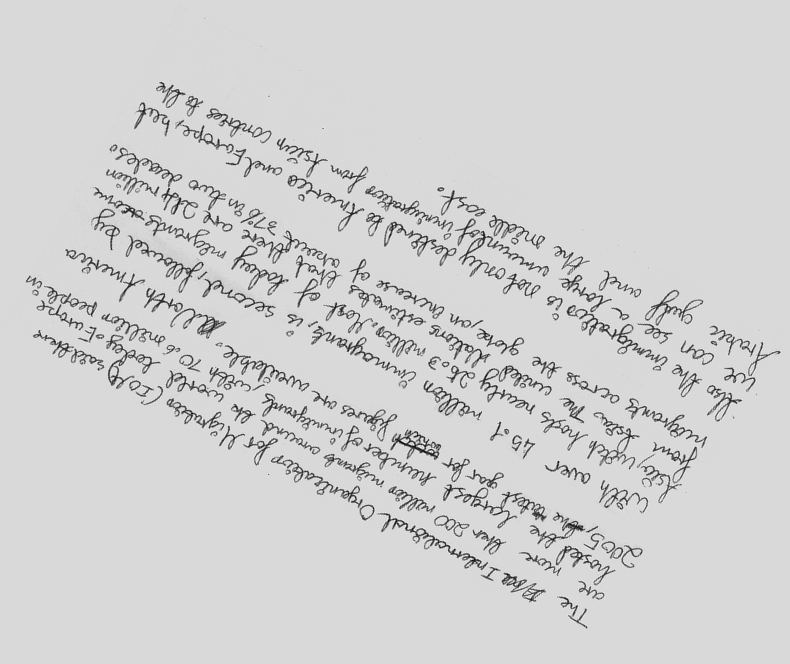 The International Organization for Migration (IOM) said there
are more then 200 million migrants around the world today. Europe
hosted the largest number of immigrants, with 70.6 million people in
2005, the latest year for which figures are available. North America
with over 45.1 million immagrants, is second, followed by
Asia, witch hosts nearly 25.3 million. Most of today migrants come
from Asia. The united Nations estimates that there are 214 million
migrants across the globe, an increase of about 37% in two decades.
Also the immigration is not only destined to America and Europe, but
we can see a large amount of immigration from Asian contries to the
Arabic gulf and the middle east.